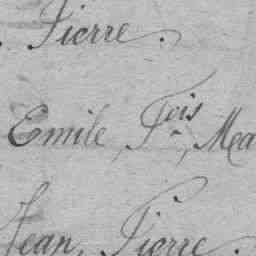 . Pierre.
Emile, Fois, Mea
Jean, Pierre.